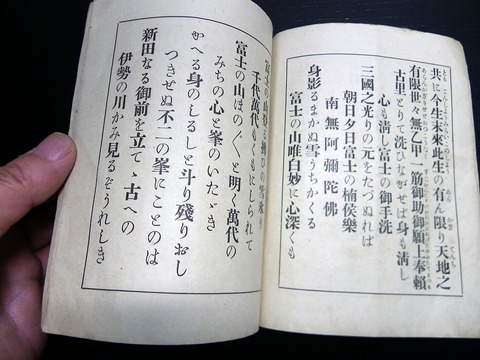 共に今生未來此生の有ん限り天地之
有限世々無之甲一筋御助御願上奉賴
古里とりて洗ひながせば身も淸し
心も淸し富士の御手洗
三國之光りの元をたづぬれば
朝日夕日富士の楠侯樂
南無阿彌陀佛
身影るまかぬ雪うちかくる
富士の山唯白妙に心深くも
千代萬代もにしられて
富士の山ほのぐと明く萬代の
みちの心と峯のいたゞき
かへる身のしるしと斗り殘りおし
つきせぬ不二の峯にことのは
新田なる御前を立てゝ古への
伊勢の川かみ見るぞうれしき